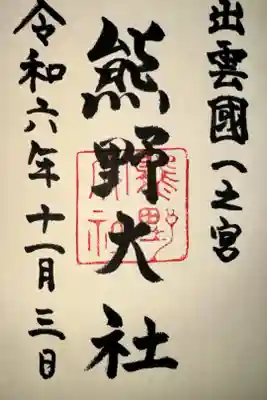 出雲國一之宮
熊野大社
令和六年十一月三日
熊野
大社